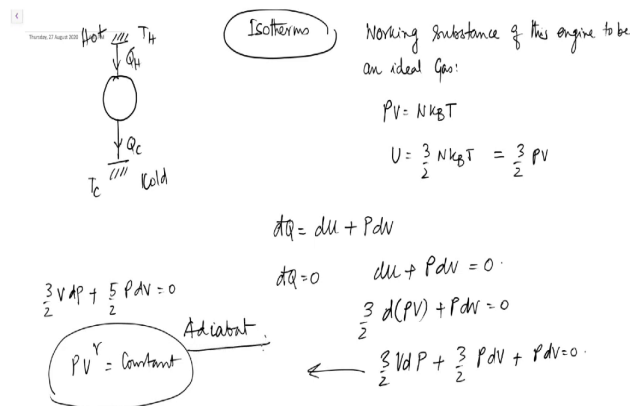 Thursday, 27 August 2020
Hot T_H
Q_H
Q_C
T_C Cold
Isotherms
Working substance of this engine to be
an ideal gas:
PV = Nk_BT
U = 3/2 Nk_BT = 3/2 PV
đQ = dU + PdV
đQ = 0 dU + PdV = 0.
3/2 d(PV) + PdV = 0
3/2 VdP + 3/2 PdV + PdV = 0.
←
3/2 VdP + 5/2 PdV = 0
Adiabat.
PV^γ = Constant